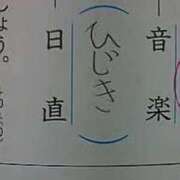 音楽
ひじき
日直
しょう。